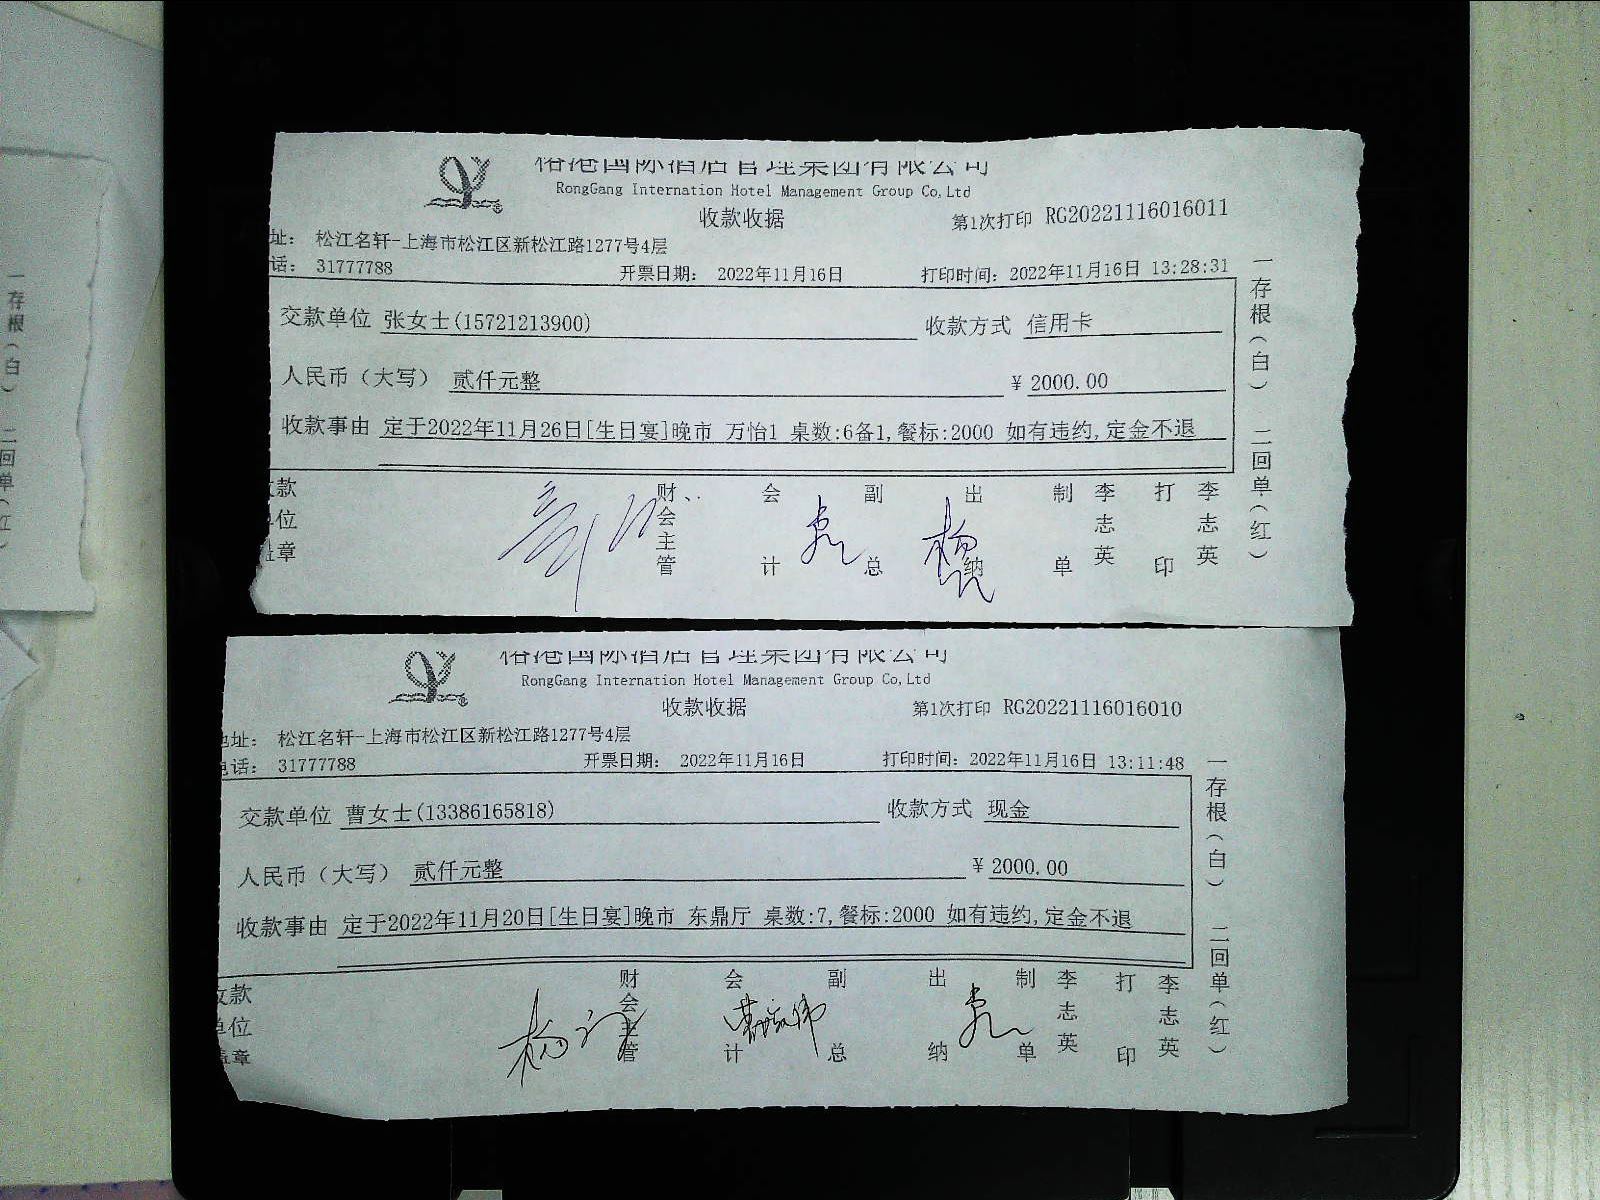 榕港国际酒店管理集团有限公司
RongGang Internation Hotel Management Group Co,Ltd
收款收据
第1次打印 RG20221116016011
址： 松江名轩-上海市松江区新松江路1277号4层
话： 31777788
开票日期： 2022年11月16日
打印时间：2022年11月16日 13:28:31
交款单位 张女士(15721213900)
收款方式 信用卡
人民币（大写） 贰仟元整
¥ 2000.00
收款事由 定于2022年11月26日[生日宴]晚市 万怡1 桌数:6备1,餐标:2000 如有违约,定金不退
收款单位盖章
财会主管
会计
副总
出纳
制单
李志英
打印
李志英
一存根（白） 二回单（红）
榕港国际酒店管理集团有限公司
RongGang Internation Hotel Management Group Co,Ltd
收款收据
第1次打印 RG20221116016010
地址： 松江名轩-上海市松江区新松江路1277号4层
电话： 31777788
开票日期： 2022年11月16日
打印时间：2022年11月16日 13:11:48
交款单位 曹女士(13386165818)
收款方式 现金
人民币（大写） 贰仟元整
¥ 2000.00
收款事由 定于2022年11月20日[生日宴]晚市 东鼎厅 桌数:7,餐标:2000 如有违约,定金不退
收款单位盖章
财会主管
会计
副总
出纳
制单
李志英
打印
李志英
一存根（白） 二回单（红）
一存根（白） 二回单（红）